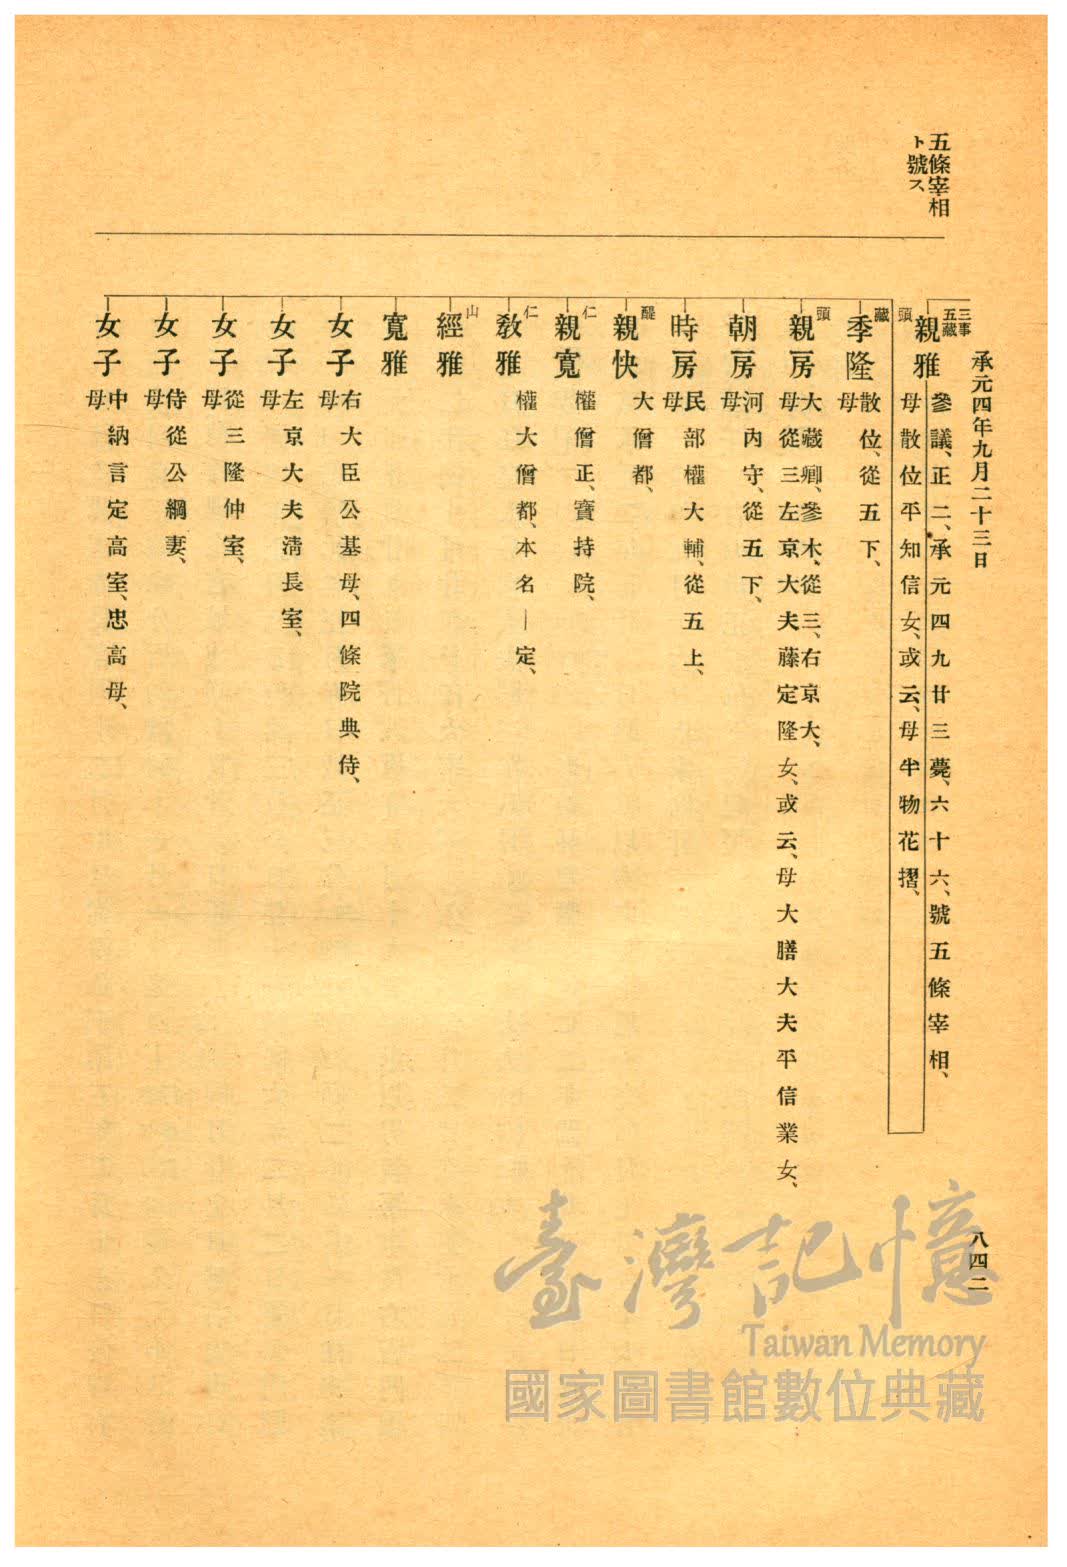 五條宰相
ト號ス、
承元四年九月二十三日
八四二
三事
五藏
頭
親雅
參議、正二、承元四九廿三薨、六十六、號五條宰相、
母散位平知信女、或云、母半物花摺、
藏
季隆
散位、從五下、
母
頭
親房
大藏卿、參木、從三、右京大、
母從三左京大夫藤定隆女、或云、母大膳大夫平信業女、
朝房
河內守、從五下、
母
時房
民部權大輔、從五上、
母
醍
親快
大僧都、
仁
親寬
權僧正、寶持院、
仁
敎雅
權大僧都、本名—定、
山
經雅
寬雅
女子
右大臣公基母、四條院典侍、
母
女子
左京大夫淸長室、
母
女子
從三隆仲室、
母
女子
侍從公綱妻、
母
女子
中納言定高室、忠高母、
母
臺灣記憶
Taiwan Memory
國家圖書館數位典藏